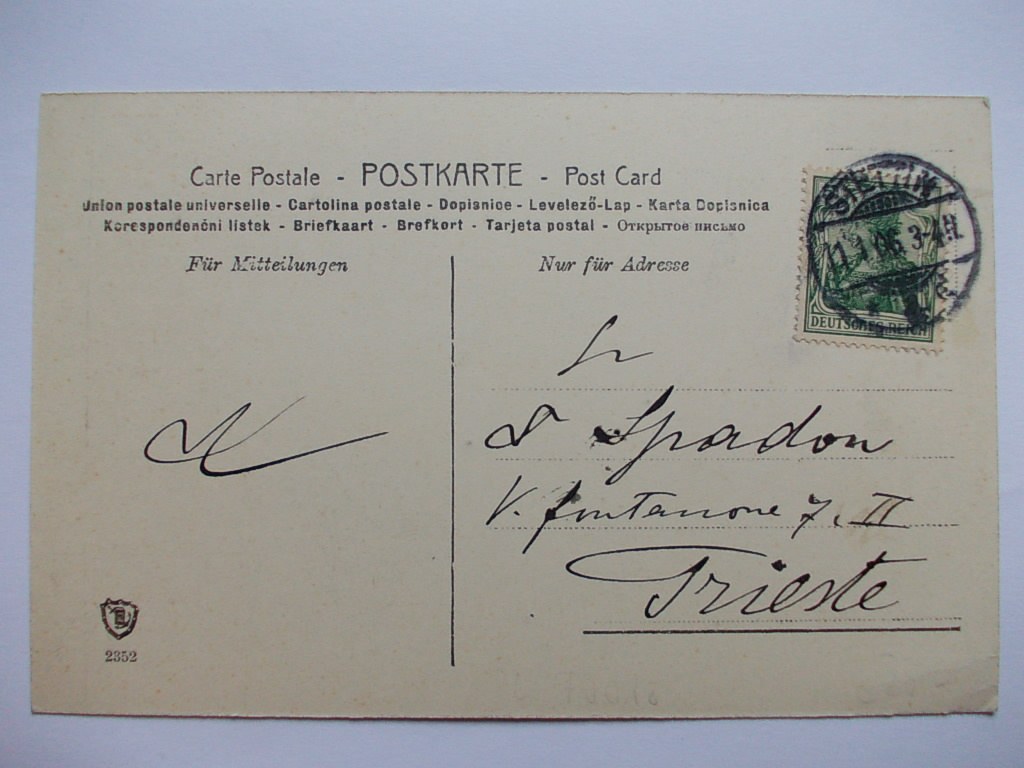 Carte Postale - POSTKARTE - Post Card
Union postale universelle - Cartolina postale - Dopisnice - Levelező-Lap - Karta Dopisnica
Korespondenční lístek - Briefkaart - Brefkort - Tarjeta postal - Открытое письмо
Für Mitteilungen
Nur für Adresse
STETTIN
3-4N.
DEUTSCHES REICH
Spadon
V. Fontanone 7. II
Trieste
2352